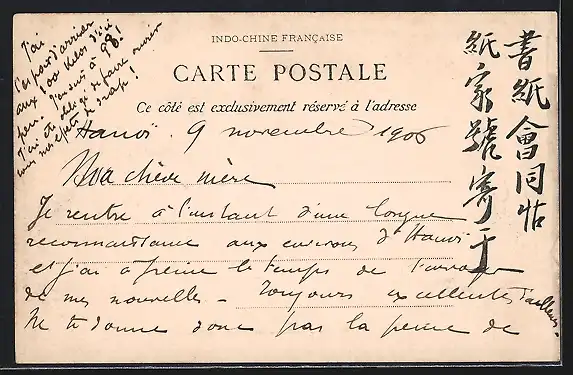 J'ai
l'espoir d'arriver
aux 100 kilos d'ici
peu. J'en suis à 98!
J'ai été obligé de faire ouvrir
tous mes effets de drap!
INDO-CHINE FRANÇAISE
CARTE POSTALE
Ce côté est exclusivement réservé à l'adresse
Hanoï. 9 novembre 1906
Ma chère mère
Je rentre à l'instant d'une longue
reconnaissance aux environs d'Hanoï
et j'ai à peine le temps de t'envoyer
de mes nouvelles - Toujours excellentes d'ailleurs.
Ne te donne donc pas la peine de
書紙會同帖
紙家號寄于